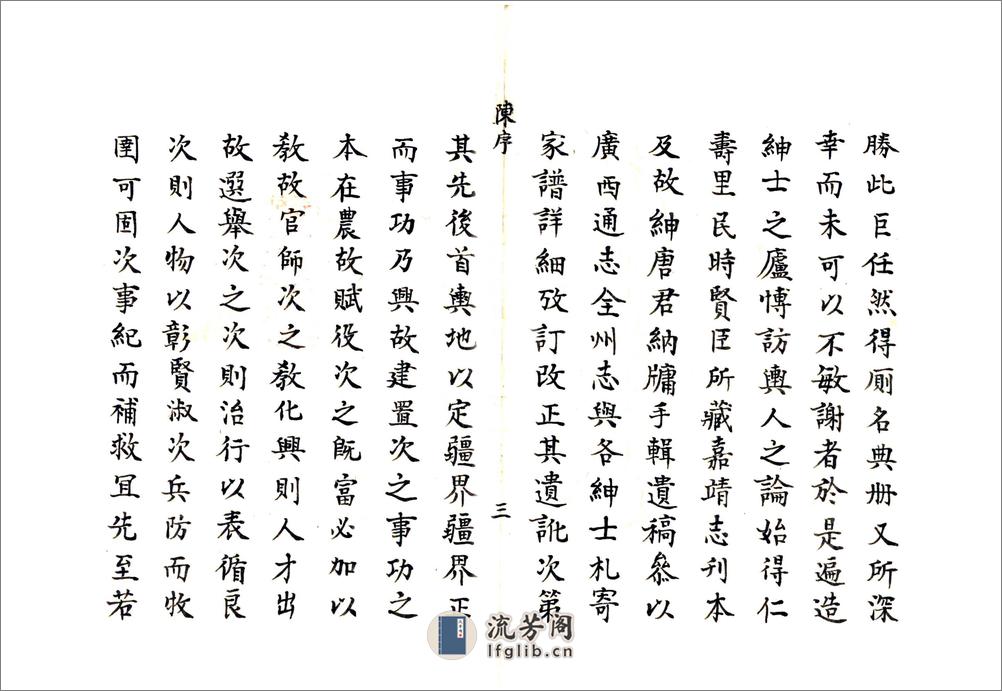 勝此巨任然得厠名典册又所深
幸而未可以不敏謝者於是遍造
紳士之廬愽訪輿人之論始得仁
壽里民時賢臣所藏嘉靖志刊本
及故紳唐君納牗手輯遺稿叅以
廣西通志全州志與各紳士札寄
家譜詳細攷訂改正其遺訛次第
陳序
三
其先後首輿地以定疆界疆界正
而事功乃興故建置次之事功之
本在農故賦役次之既富必加以
教故官師次之教化興則人才出
故選舉次之次則治行以表循良
次則人物以彰賢淑次兵防而牧
圉可固次事紀而補救宜先至若
流芳阁
lfglib.cn